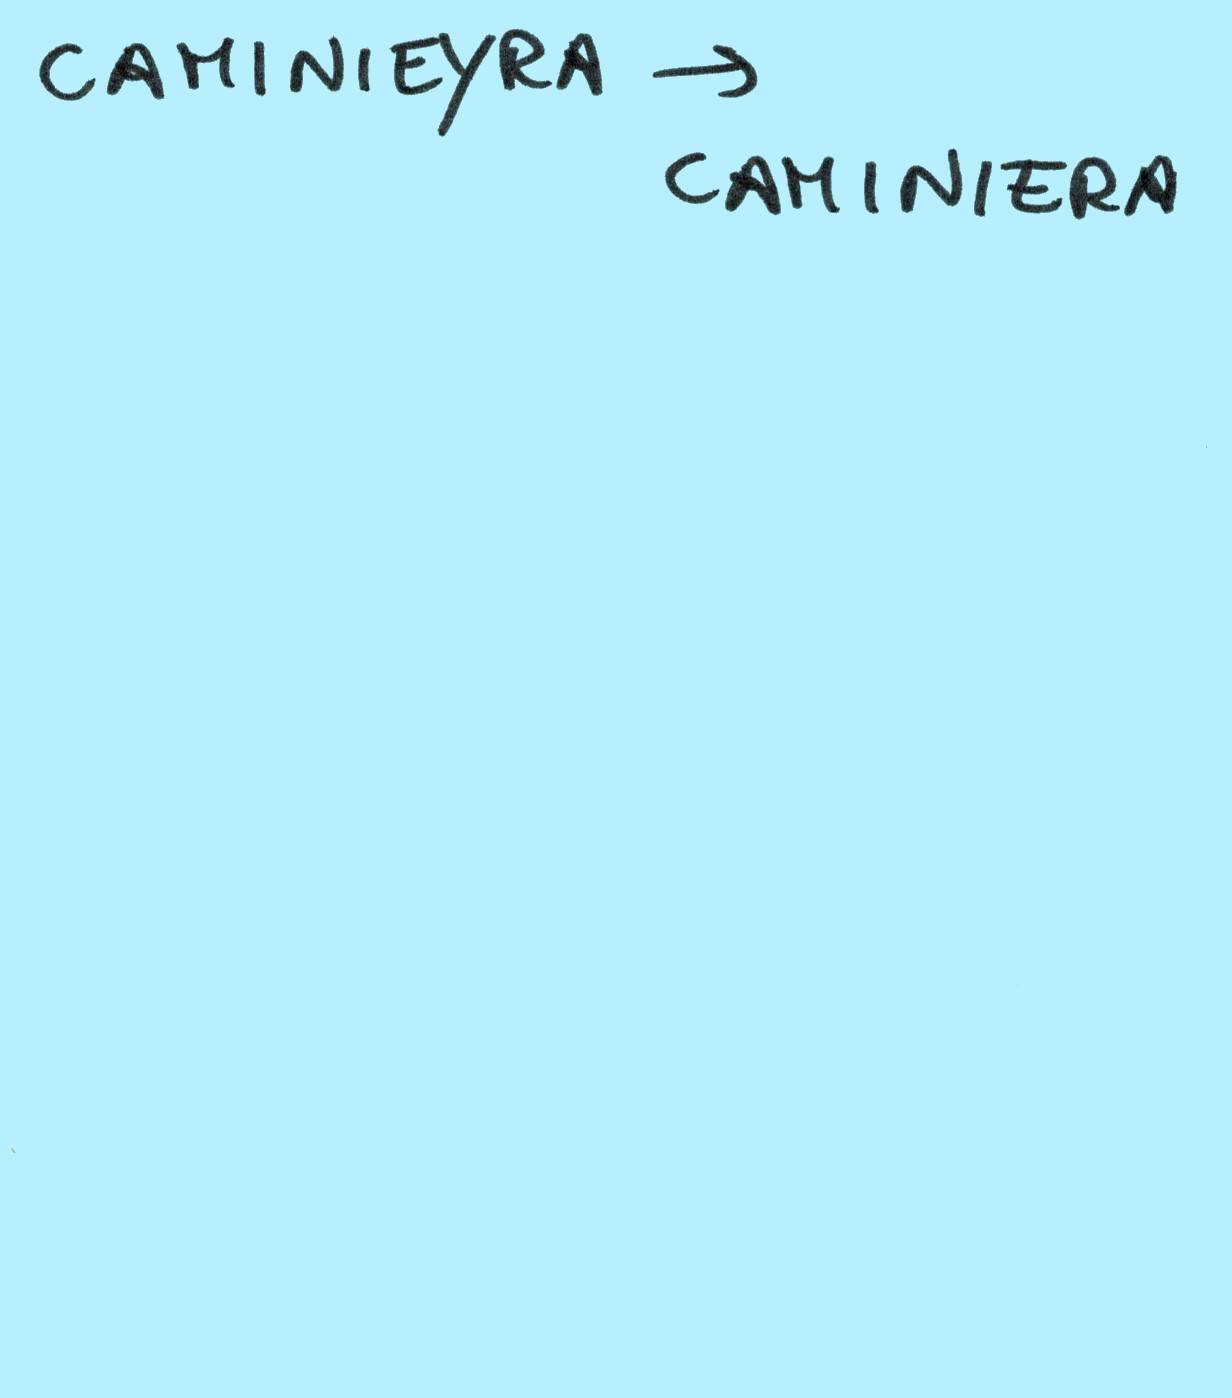 CAMINIEYRA →
CAMINIERA